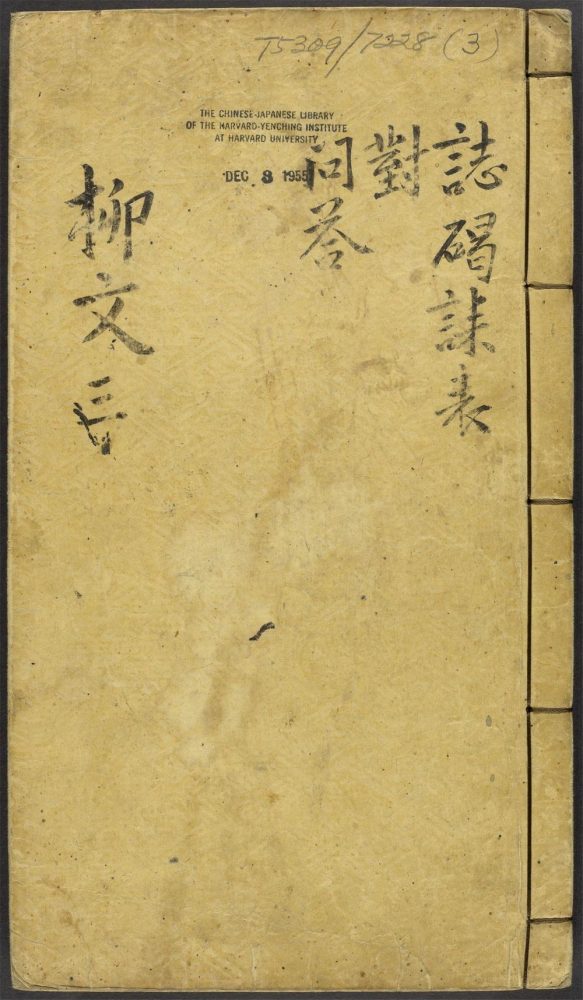 T5309/7228 (3)
THE CHINESE-JAPANESE LIBRARY
OF THE HARVARD-YENCHING INSTITUTE
AT HARVARD UNIVERSITY
DEC 8 1955
誌碣誄表
對
问荅
柳文